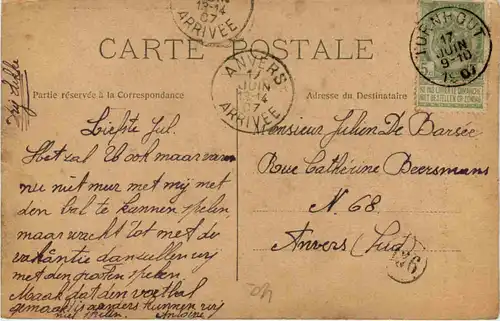 ANVERS
17
JUIN
13-14
07
ARRIVÉE
13-14
07
ARRIVÉE
TURNHOUT
17
JUIN
9-10
07
NE PAS LIVRER LE DIMANCHE
NIET BESTELLEN OP ZONDAG
CARTE POSTALE
Partie réservée à la Correspondance
Adresse du Destinataire
Liefste Jul.
Het zal U ook maar varen
nu niet meer met mij met
den bal te kunnen spelen,
maar wacht tot met de
vakantie dan zullen wij
met den grooten spelen.
Maak dat den voetbal
gemaakt is anders kunnen wij
niet spelen. Antoine
Monsieur Julien De Barsée
Rue Cathérine Beersmans
N. 68.
Anvers (Sud)